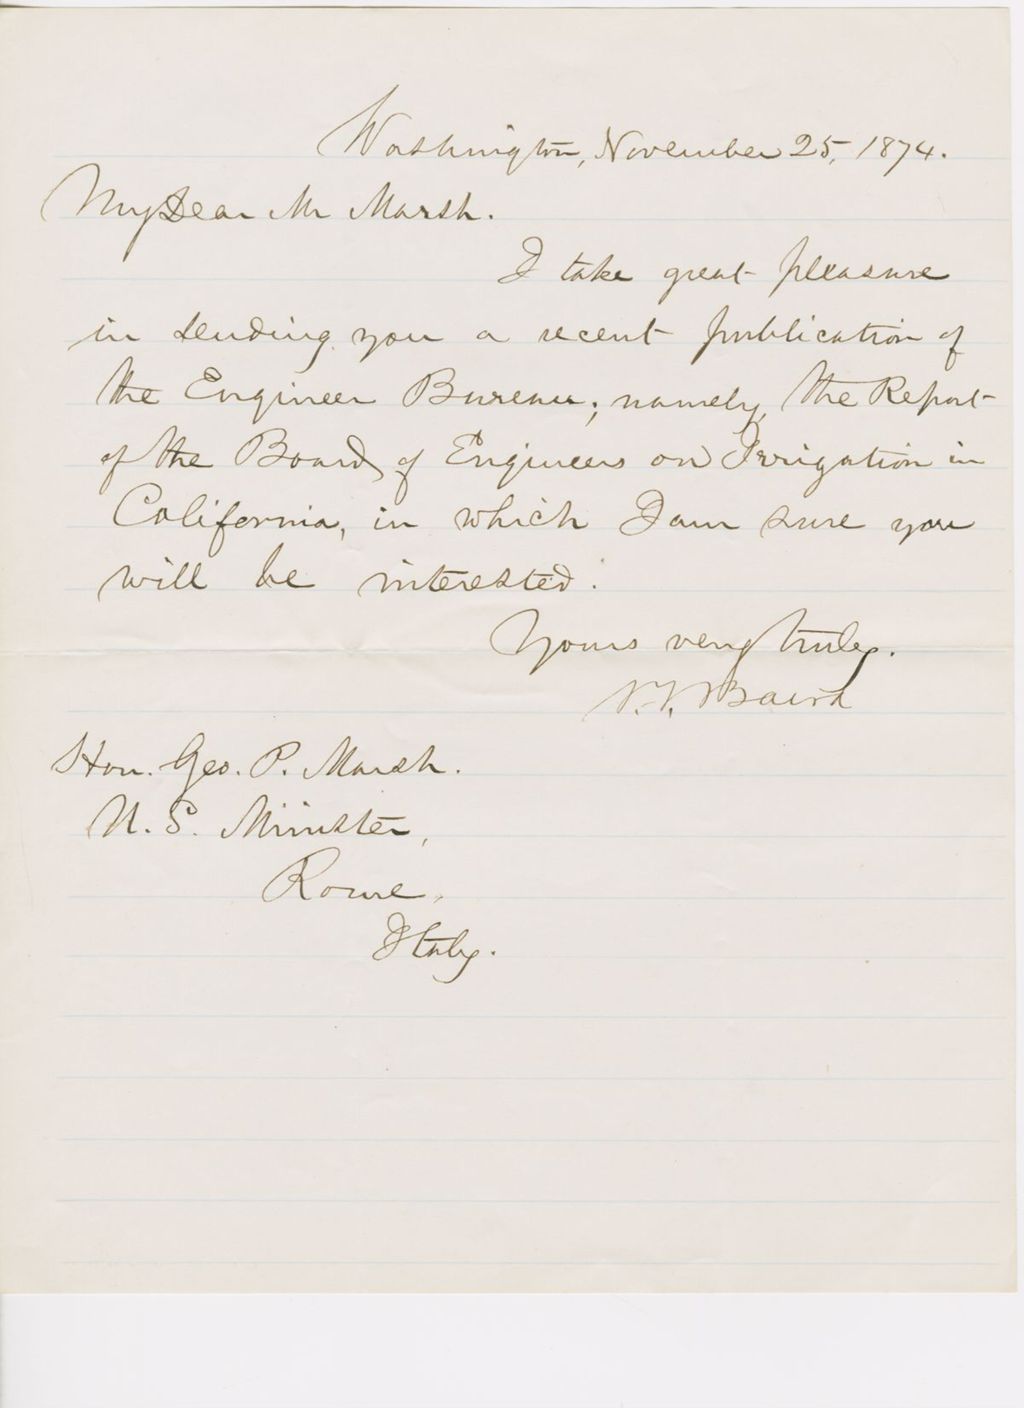 Washington, November 25, 1874.
My Dear Mr Marsh.
I take great pleasure
in sending you a recent publication of
the Engineer Bureau; namely, the Report
of the Board of Engineers on Irrigation in
California, in which I am sure you
will be interested.
Yours very truly.
S. F. Baird
Hon. Geo. P. Marsh.
U. S. Minister,
Rome,
Italy.